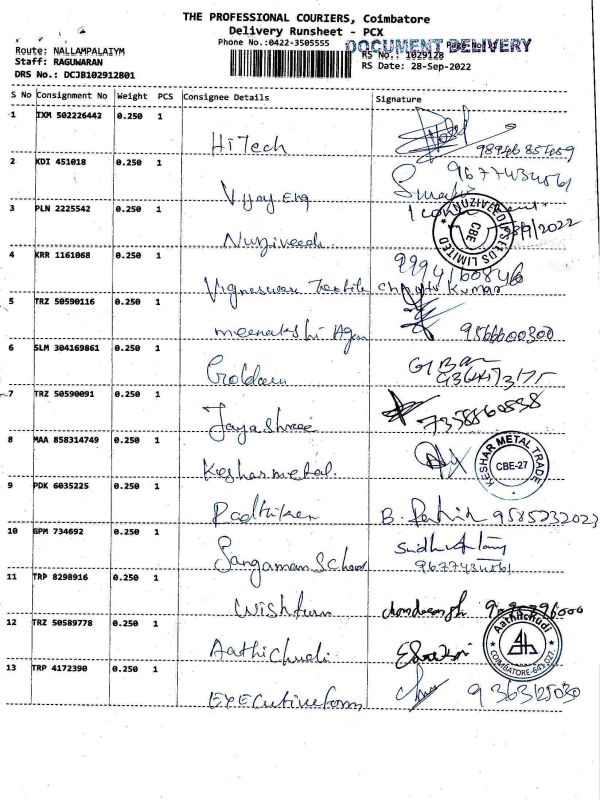 THE PROFESSIONAL COURIERS, Coimbatore
Delivery Runsheet - PCX
Phone No.:0422-3505555
DOCUMENT DELIVERY
Route: NALLAMPALAIYM
RS No.: 1029128
Staff: RAGUWARAN
RS Date: 28-Sep-2022
DRS No.: DCJB102912801
S No Consignment No Weight PCS Consignee Details Signature
1 IXM 502226442 0.250 1
HiTech
2 KDI 451018 0.250 1
9677434561
Vijay Eng
3 PLN 2225542 0.250 1
NUZIVEEDU SEEDS LIMITED CBE
Nuziveedu
4 KRR 1161068 0.250 1
9994160846
Vigneswara Textile
5 TRZ 50590116 0.250 1
meenakshi Agen 9566600300
6 SLM 304169861 0.250 1
7 TRZ 50590091 0.250 1
7358860538
Jayashree
8 MAA 858314749 0.250 1
KESHAR METAL TRADE CBE-27
Keshar metal.
9 PDK 6035225 0.250 1
9585232023
10 GPM 734692 0.250 1
9677434561
11 TRP 8298916 0.250 1
12 TRZ 50589778 0.250 1
Aathichudi COIMBATORE-641 027.
Aathichudi
13 TRP 4172390 0.250 1
Executiveform